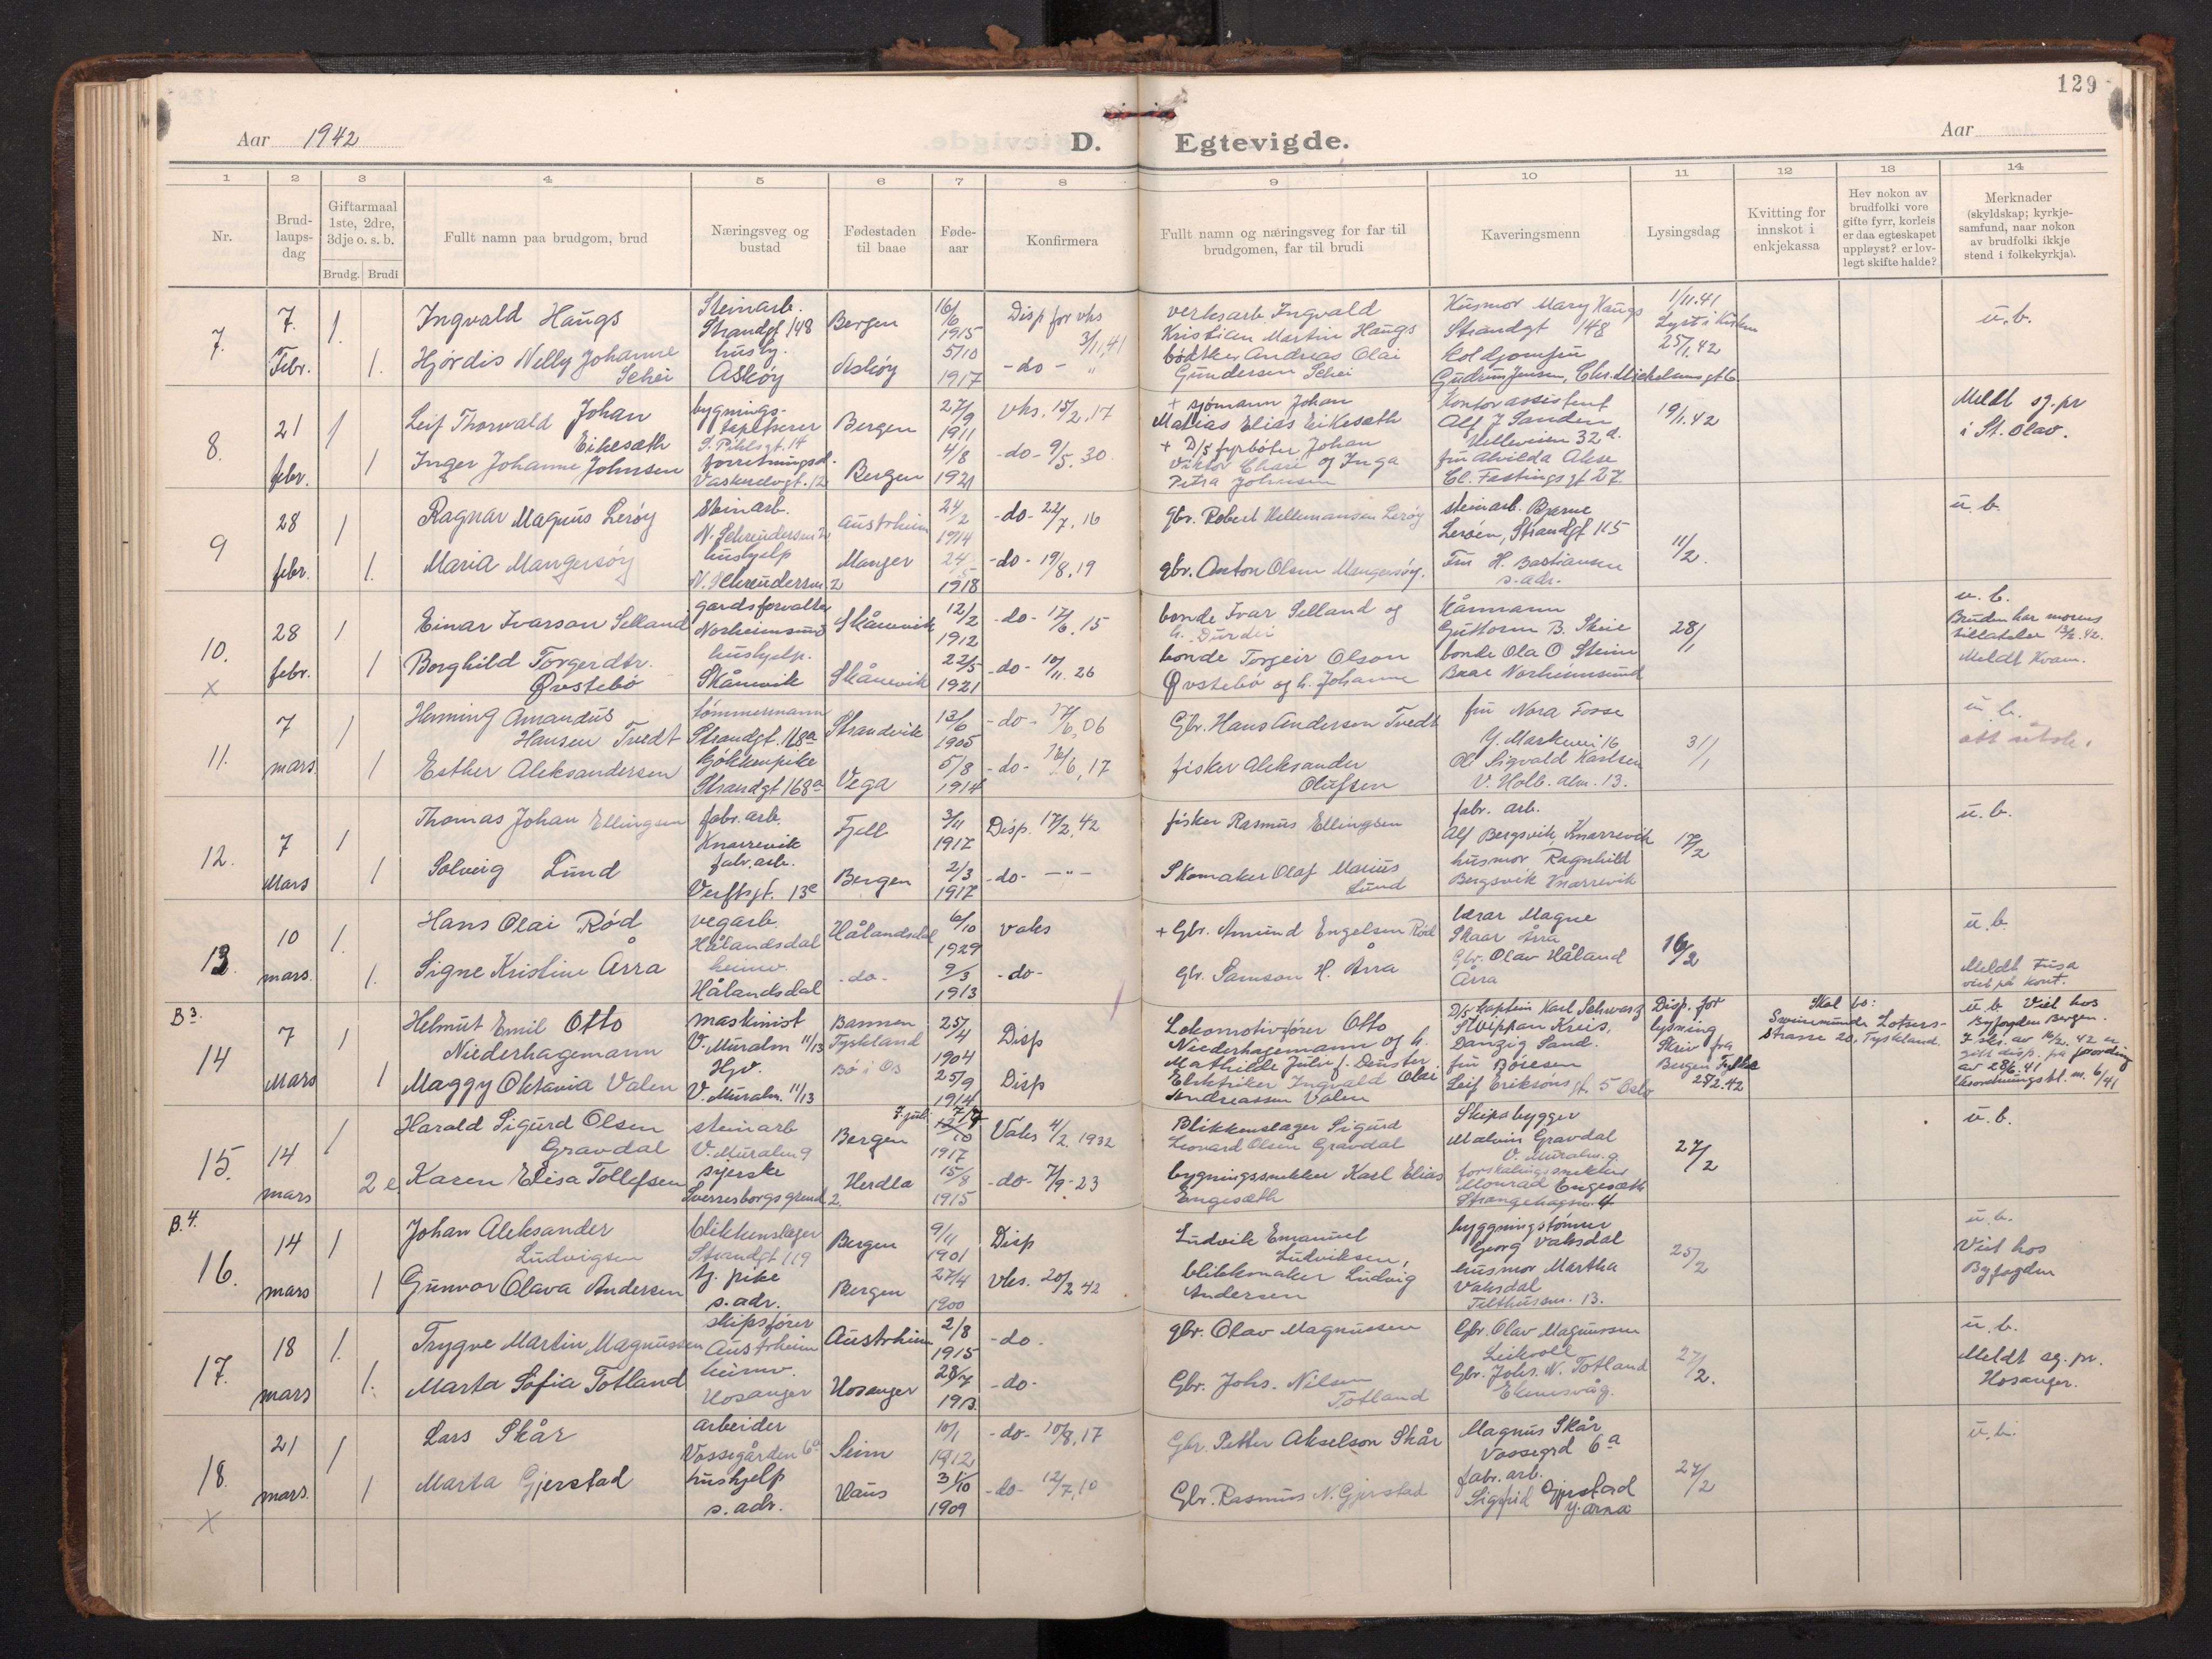 129
Aar 1942
D. Egtevigde.
Aar
1 2 3 4 5 6 7 8 9 10 11 12 13 14
Nr.
Brud-
laups-
dag
Giftarmaal
1ste, 2dre,
3dje o. s. b.
Brudg. Brudi
Fullt namn paa brudgom, brud
Næringsveg og
bustad
Fødestaden
til baae
Føde-
aar
Konfirmera
Fullt namn og næringsveg for far til
brudgomen, far til brudi
Kaveringsmenn
Lysingsdag
Kvitting for
innskot i
enkjekassa
Hev nokon av
brudfolki vore
gifte fyrr, korleis
er daa egteskapet
uppløyst? er lov-
legt skifte halde?
Merknader
(skyldskap; kyrkje-
samfund, naar nokon
av brudfolki ikkje
stend i folkekyrkja).
7.
7.
Febr.
1.
1.
Ingvald Haugs
Hjørdis Nelly Johanne
Schei
Steinarb.
Strandgt. 148
husby.
Askøy
Bergen
Askøy
16/6
1915
5/10
1917
Disp for vks
3/11.41
-do- "
verksarb Ingvald
Kristian Martin Haugs
bødtker Andreas Olai
Gundersen Schei
Husmor Mary Haugs
Strandgt 148
Gudrun Jensen, Chr. Michelsensgt 6
1/11.41
25/1.42
u.b.
8.
21
febr.
1
1
Leif Thorvald Johan
Eikesæth
Inger Johanne Johnsen
bygnings-
tapetserer
S. Pihlsgt. 14
forretningsd.
Vaskerelvgt. 12
Bergen
Bergen
27/9
1911
4/8
1921
vks. 15/2.17
-do- 9/5.30
+ sjømann Johan
Matias Elias Eikesæth
+ D/s fyrbøter Johan
Viktor og Inga
Petra Johnsen
Kontorassistent
Alf J Sanden
Helleveien 32 d.
fru Alvilda Akse
Cl. Fastingsgt 27.
19/1.42
Meldt sg. pr
i St. Olav.
9
28
febr.
1
1.
Ragnar Magnus Lerøy
Maria Mangersøy
Steinarb.
N. Schreudersm 2
hushjelp
N. Schreudersm 2
Austrheim
Manger
24/2
1914
24/5
1918
-do- 22/7.16
-do- 19/8.19
gbr. Robert Hellemansen Lerøy
gbr. Anton Olsen Mangersøy.
steinarb. Bjarne
Lerøen, Strandgt 115
Fru H. Bastiansen
s. adr.
11/2.
u.b.
10.
x
28
febr.
1
1
Einar Ivarson Selland
Borghild Torgerdtr.
Øvstebö
gardsforvalter
Norheimsund
hushjelp.
Skånevik
Skånevik
Skånevik
12/2
1912
22/5
1921
-do- 17/6.15
-do- 10/11.26
bonde Ivar Selland og
h. Durdei
bonde Torgeir Olson
Øvstebø og h. Johanne
Kånmann
Guttorm B. Skeie
bonde Ola O Steine
Baae Norheimsund
28/1
u.b.
Bruden har morens
tillatelse 13/2.42.
Meldt Kvam.
11.
7
mars
1
1
Henning Amandus
Hansen Tvedt
Esther Aleksandersen
tømmermann
Strandgt. 168a
Kjøkkenpike
Strandgt 168a
Strandvik
Vega
13/6
1905
5/8
1914
-do- 17/6.06
-do- 16/6.17
Gbr. Hans Anderson Tvedt
fisker Aleksander
Olufsen
fru Nora Fosse
Y. Markevei 16
Ole Sigvald Karlsen
V. Holb. alm. 13.
31/1
u.b.
att utsk.
12.
7
Mars
1
1
Thomas Johan Ellingsen
Solveig Lund
fabr. arb.
Knarrevik
fabr. arb.
Verftsgt. 13c
Fjell
Bergen
3/11
1917
2/3
1917
Disp. 17/2.42
-do- -"-
fisker Rasmus Ellingsen
Skomaker Olaf Marius
Lund
fabr. arb.
Alf Bergsvik, Knarrevik
husmor Ragnhild
Bergsvik Knarrevik
17/2
u.b.
13.
10
mars.
1.
1.
Hans Olai Rød
Signe Kristine Årra
vegarb.
Hålandsdal
heimv.
Hålandsdal
Hålandsdal
-do-
6/10
1929
9/3
1913
vaks
-do-
+ Gbr. Amund Engelsen Rød
Gbr. Samson H. Årra
lærar Magne
Skaar Årra
Gbr. Olav Håland
Årra
16/2
u.b.
Meldt Fusa
viet på kont.
B3.
14
7
Mars
1
1
Helmut Emil Otto
Niederhagemann
Maggy Oktavia Valen
maskinist
V. Muralm 11/13
Hjv.
V. Muralm. 11/13
Barmen
Tyskland
Bø i Os
25/4
1904
25/9
1914
Disp
Disp
Lokomotivfører Otto
Niederhagemann og h.
Mathilde Julie f. Denster
Elektriker Ingvald Olai
Andreassen Valen
D/s Kaptein Karl Schwarz
Danzig Land.
fru Bøiesen
Leif Eriksons gt. 5 Oslo
Disp. for
lysning
Skriv fra
Bergen Fylke
25/2.42
Skal bo:
Swinemünde Lotsen-
Strasse 20, Tyskland.
u.b. Viet hos
Byfogden Bergen.
15.
14
mars
1
2 e.
Harald Sigurd Olsen
Gravdal
Karen Elisa Tollefsen
steinarb
V. Muralm 9
syerske
Sverresborgs grend 2.
Bergen
Herdla
1917
15/8
1915
Vaks 4/2.1932
-do- 7/9-23
Blikkenslager Sigurd
Leonard Olsen Gravdal
bygningssnekker Karl Elias
Engesæth
Skipsbygger
Malvin Gravdal
V. Muralm. 9.
forskalingssnekker
Monrad Engesæth
Strangehagen 4
27/2
u.b.
B.4.
16.
14
mars
1
1
Johan Aleksander
Ludvigsen
Gunvor Olava Andersen
blikkenslager
Strandgt 119
tj. pike
s. adr.
Bergen
Bergen
9/11
1901
27/4
1900
Disp
vks. 20/2 42
Ludvik Emanuel
Ludviksen,
blikkmaker Ludvig
Andersen
byggningstømrer
Georg Vaksdal
husmor Martha
Vaksdal
Telthussm. 13.
25/2
u.b.
Viet hos
Byfogden
17.
18
mars
1.
1.
Trygve Martin Magnussen
Marta Sofia Totland
skipsfører
Austrheim
heimv.
Hosanger
Austrheim
Hosanger
2/8
1915
28/7
1913.
-do-
-do-
gbr. Olav Magnussen
Gbr. Johs. Nilsen
Totland
Gbr. Olav Magnussen
Leikvoll
Gbr. Johs. N. Totland
Eknesvåg.
27/2.
u.b.
Meldt sg. pr.
Hosanger.
18.
x
21
mars.
1
1
Lars Skår
Marta Gjerstad
arbeider
Vossegården 6a
hushjelp
s. adr.
Seim
Haus
10/1
1912
31/10
1909
-do- 10/8.17
-do- 12/7.10
Gbr. Petter Akselson Skår
Gbr. Rasmus N. Gjerstad
Magnus Skår
Vossegrd 6a
fabr. arb.
Sigfrid Gjerstad
Y. Arna
27/2
u.b.